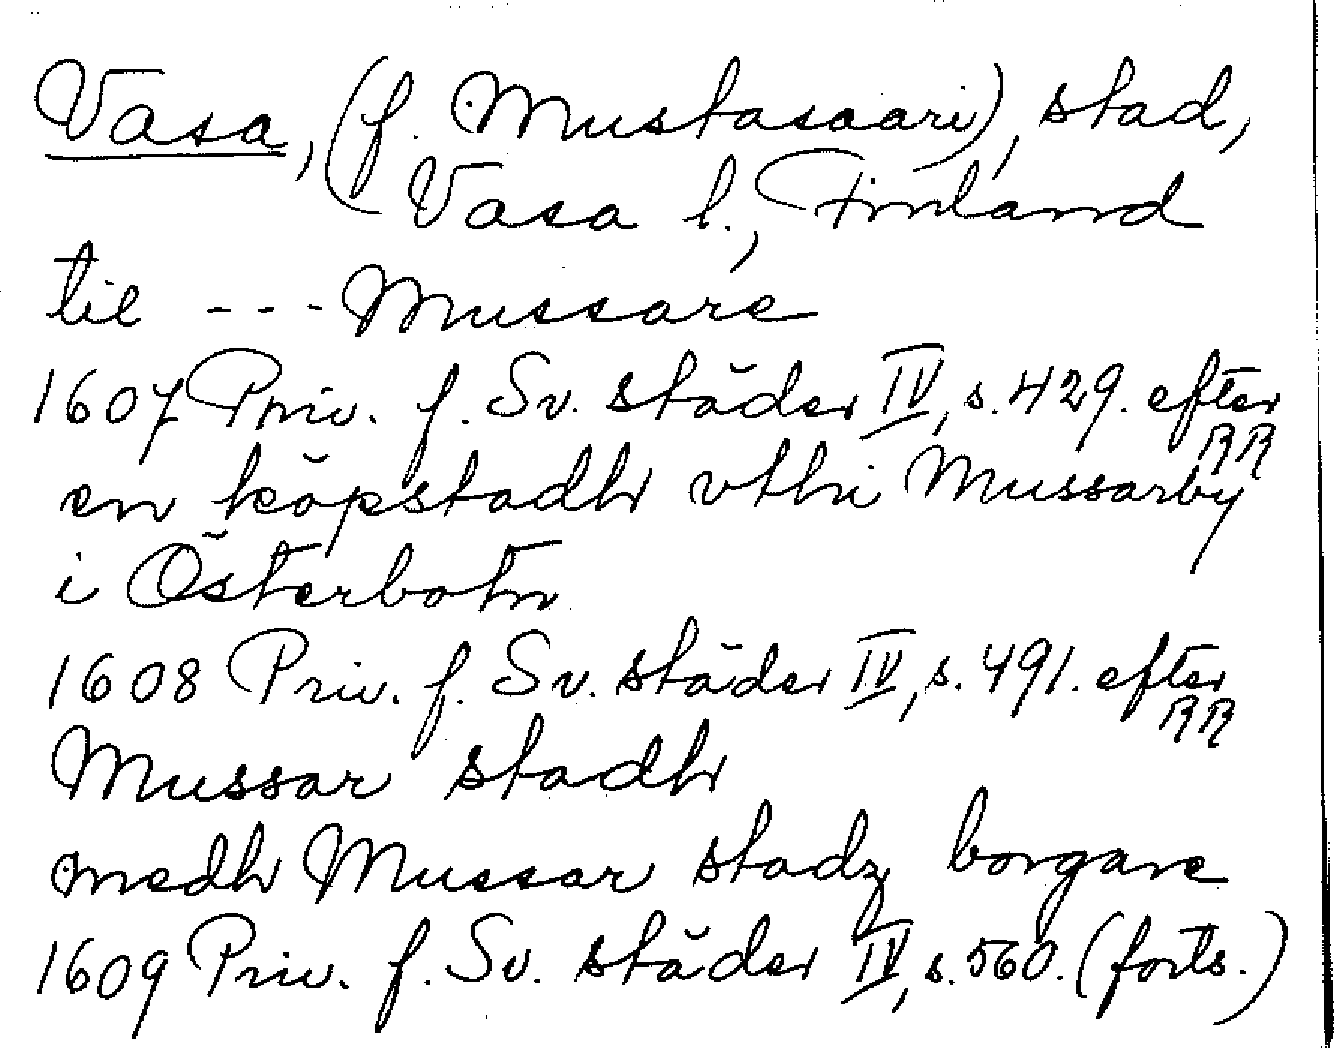 Vasa, (f. Mustasaari), stad,
Vasa l., Finland
til --- Mussare
1607 Priv. f. Sv. städer IV, s. 429. efter RR
en köpstadh vthi Mussarby
i Österbotn
1608 Priv. f. Sv. städer IV, s. 491. efter RR
Mussar stadh
medh Mussar stadz borgare
1609 Priv. f. Sv. städer IV, s. 560. (forts.)